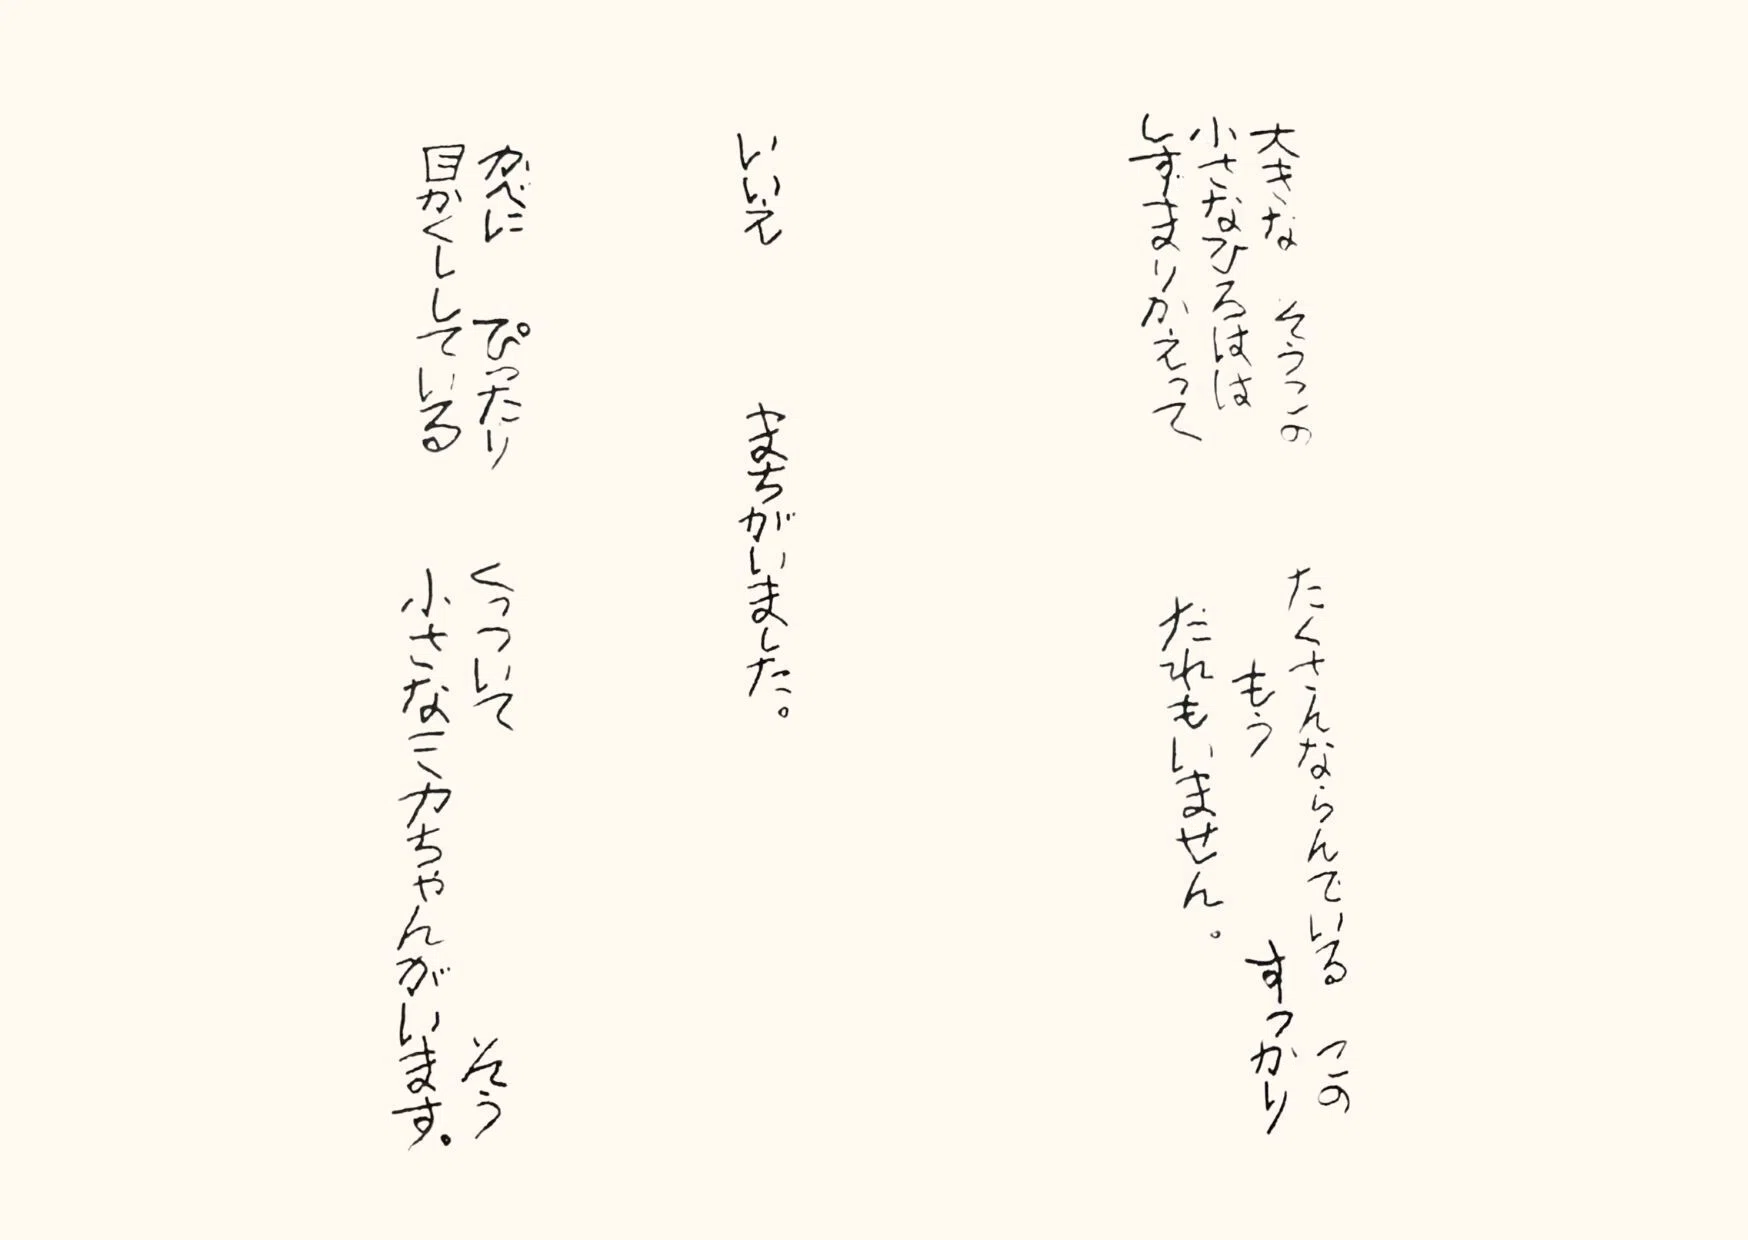 大きな　そうこの　たくさんならんでいる　この
小さなひろはは　もう　すっかり
しずまりかえって　だれもいません。
いいえ　やまちがいました。
かべに　ぴったり　くっついて　そう
目かくししている　小さなミカちゃんがいます。